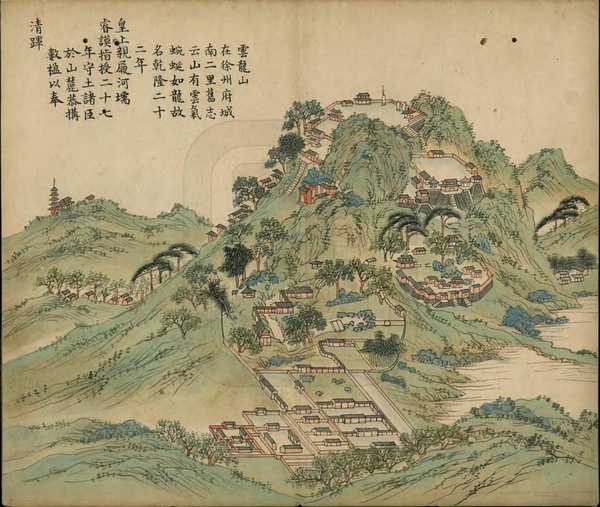 雲龍山
在徐州府城
南二里舊志
云山有雲氣
蜿蜒如龍故
名乾隆二十
二年
皇上親履河壖
睿謨指授二十七
年守土諸臣
於山麓恭搆
數楹以奉
清蹕